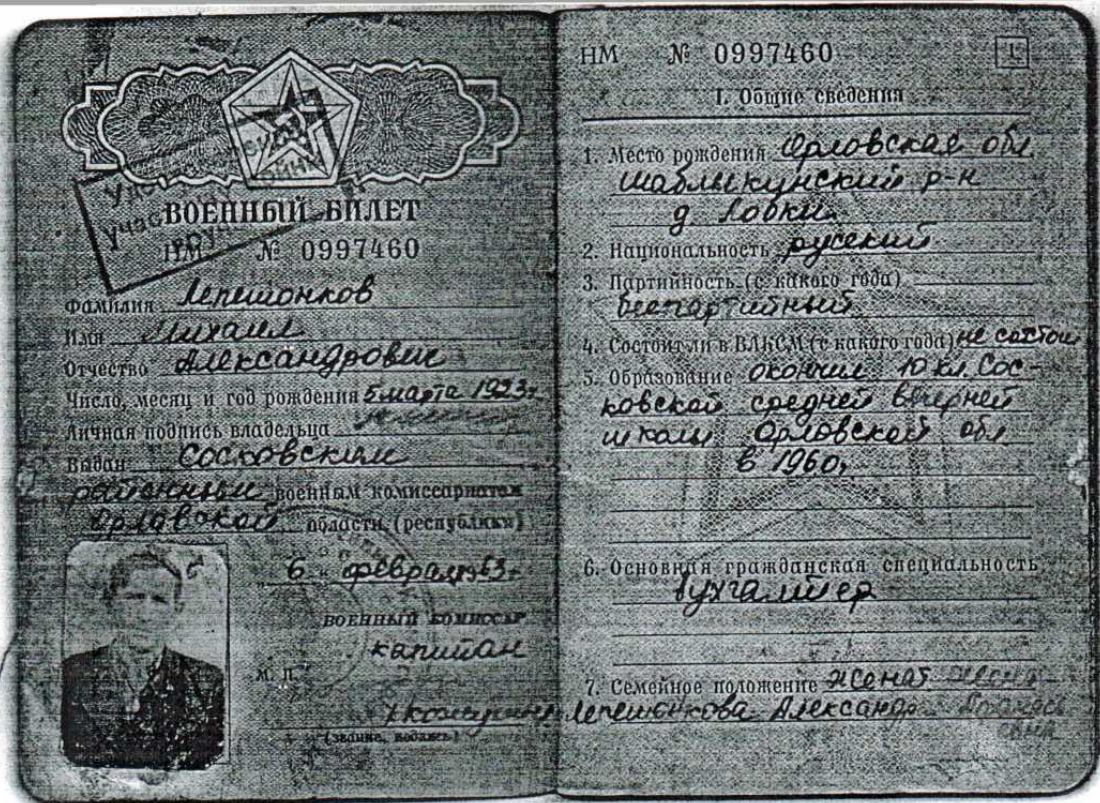 ВОЕННЫЙ БИЛЕТ
НМ № 0997460
Фамилия Лепешонков
Имя Михаил
Отчество Александрович
Число, месяц и год рождения 5 марта 1923 г.
Личная подпись владельца
Выдан Сосковским
районным военным комиссариатом
Орловской области (республики)
6 февраля 1963 г.
ВОЕННЫЙ КОМИССАР
капитан
М. П.
(звание, подпись)
НМ № 0997460
1
I. Общие сведения
1. Место рождения Орловская обл.
Шаблыкинский р-н
д. Лобки
2. Национальность русский
3. Партийность (с какого года)
беспартийный
4. Состоит ли в ВЛКСМ (с какого года) не состоит
5. Образование окончил 10 кл. Сос-
ковской средней вечерней
школы Орловской обл
в 1960 г.
6. Основная гражданская специальность
бухгалтер
7. Семейное положение женат
Лепешонкова Александра